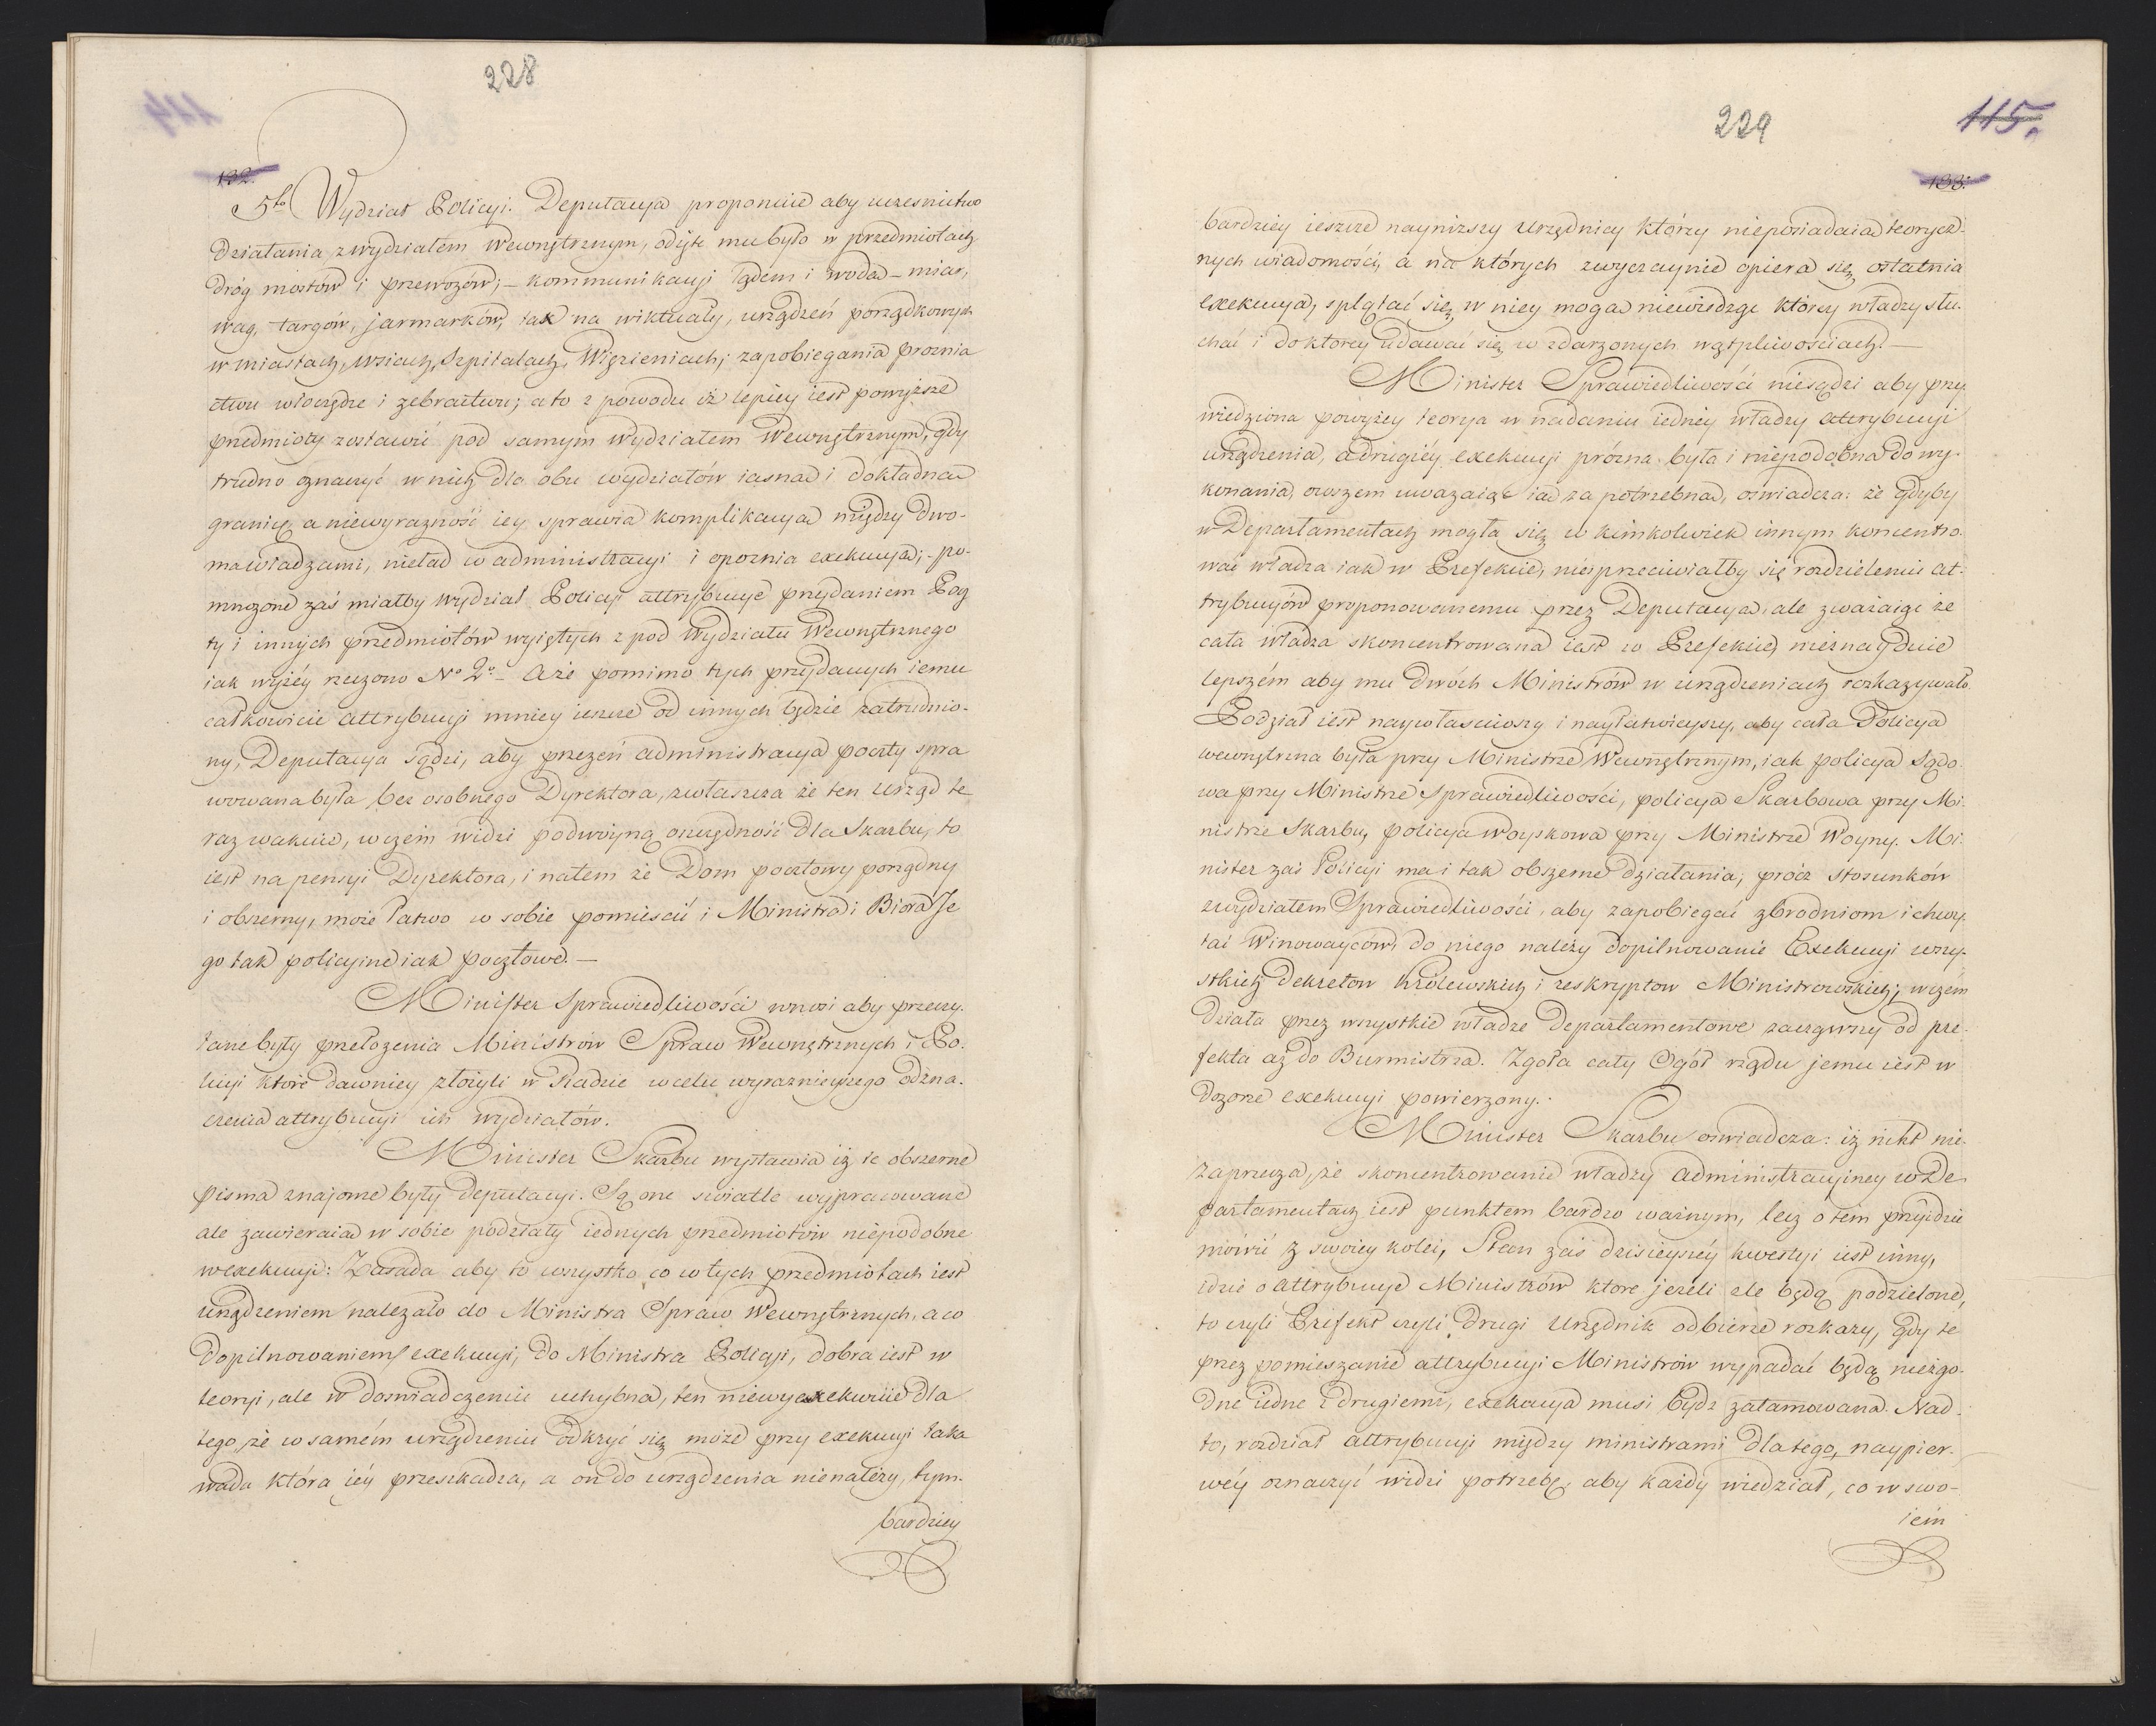 228
132.
5to Wydział Policyi. Deputacya proponuie aby uczesnictwo
działania z wydziałem Wewnętrznym, odięte mu było w przedmiotach
dróg mostów i przewozów; – kommunikacyi lądem i wodą – miar,
wag, targów, jarmarków, tax na wiktuały, urządzeń porządkowych
w miastach, wsiach, Szpitalach, Więzieniach; zapobiegania prożnia
ctwu włoczędze i żebractwu; a to z powodu iż lepiey iest powyższe
przedmioty zostawić pod samym Wydziałem Wewnętrznym, gdy
trudno oznaczyć w nich dla obu wydziałów iasną i dokładną
granicę a niewyraźność iey sprawia komplikacyą między dwo-
ma władzami, nieład w administracyi i opoznia exekucyą; – po-
mnożone zaś miałby Wydział Policyi attrybucye przydaniem Pog
ty i innych przedmiotów wyiętych z pod Wydziału Wewnętrznego
iak wyżéy rzeczono No 2o – A że pomimo tych przydanych iemu
całkowicie attrybucyi mniey ieszcze od innych będzie zatrudnio-
ny, Deputacya sądzi, aby przezeń administracya poczty spra
wowana była, bez osobnego Dyrektora, zwłaszcza że ten urząd te
raz wakuie, w czém widzi podwóyną oszczędność dla Skarbu, to
iest na pensyi Dyrektora, i na tem że Dom pocztowy porządny
i obszerny, może łatwo w sobie pomieścić i Ministra i Biora Je
go tak policyine iak pocztowe. –
Minister Sprawiedliwości wnosi aby przeczy-
tane były przełożenia Ministrów Spraw Wewnętrznych i Po-
licyi które dawniey złożyli w Radzie w celu wyraznieyszego odzna-
czenia attrybucyi ich wydziałów.
Minister Skarbu wystawia iż te obszerne
pisma znajome były Deputacyi. Są one swiatle wypracowane
ale zawieraią w sobie podziały iednych przedmiotów niepodobne
w exekucyi: Zasada aby to wszystko co w tych przedmiotach iest
urządzeniem należało do Ministra Spraw Wewnętrznych, a co
dopilnowaniem exekucyi, do Ministra Policyi, dobra iest w
teoryi, ale w doswiadczeniu uchybna, ten niewyexekwuie dla
tego, że w samém urządzeniu odkryć się może przy exekucyi taka
wada która iéy przeszkadza, a on do urządzenia nienależy, tym-
bardziey
229
115.
133.
bardziey ieszcze nayniższy Urzędnicy którzy nieposiadaią teorycz-
nych wiadomości, a na których zwyczaynie opiera się ostatnia
exekucya, splątać się w niey mogą niewiedząc którey władzy słu-
chać i do ktorey udawać się w zdarzonych wątpliwościach. –
Minister Sprawiedliwości niesądzi aby przy-
wiedziona powyżey teorya w nadaniu iednéy władzy attrybucyi
urządzenia, a drugiéy exekucyi próżna była i niepodobna do wy-
konania, owszem uważaiąc ią za potrzebną, oswiadcza: że gdyby
w Departamentach mogła się w kimkolwiek innym koncentro-
wać władza iak w Prefekcie, nieprzeciwiałby się rozdzieleniu at-
trybucyów proponowanemu przez Deputacyą, ale zważaiąc że
cała władza skoncentrowana iest w Prefekcie, nieznayduie
lepszém aby mu dwóch Ministrów w urządzeniach rozkazywało.
Podział iest naywłasciwszy i nayłatwieyszy, aby cała Policya
wewnętrzna była przy Ministrze Wewnętrznym, iak policya Sądo-
wa przy Ministrze Sprawiedliwości, policya Skarbowa przy Mi-
nistrze Skarbu, policya Woyskowa przy Ministrze Woyny. Mi-
nister zaś Policyi ma i tak obszerne działania, prócz stosunków
z wydziałem Sprawiedliwości, aby zapobiegać zbrodniom i chwy-
tać Winowayców, do niego należy dopilnowanie Exekucyi wszy-
stkich dekretow Królewskich i reskryptow Ministrowskich; w czém
działa przez wszystkie władze Departamentowe zacząwszy od pre-
fekta aż do Burmistrza. Zgoła cały Ogół rządu jemu iest w
dozorze exekucyi powierzony.
Minister Skarbu oswiadcza: iż nikt nie-
zaprzecza, że skoncentrowanie władzy administracyiney w De-
partamentach iest punktem bardzo ważnym, lecz o tém przyidzie
mówić z swoiey kolei, Stan zaś dzisieyszéy kwestyi iest inny,
idzie o attrybucye Ministrów które jeżeli źle będą podzielone,
to czyli Prefekt czyli drugi Urzędnik odbierze rozkazy, gdy te
przez pomieszanie attrybucyi Ministrów wypadać będą niezgo-
dne iedne z drugiemi, exekucya musi bydź zatamowana. Nad-
to, rozdział attrybucyi między ministrami dlatego, naypier-
wéy oznaczyć widzi potrzebę, aby każdy wiedział, co w swo-
iém